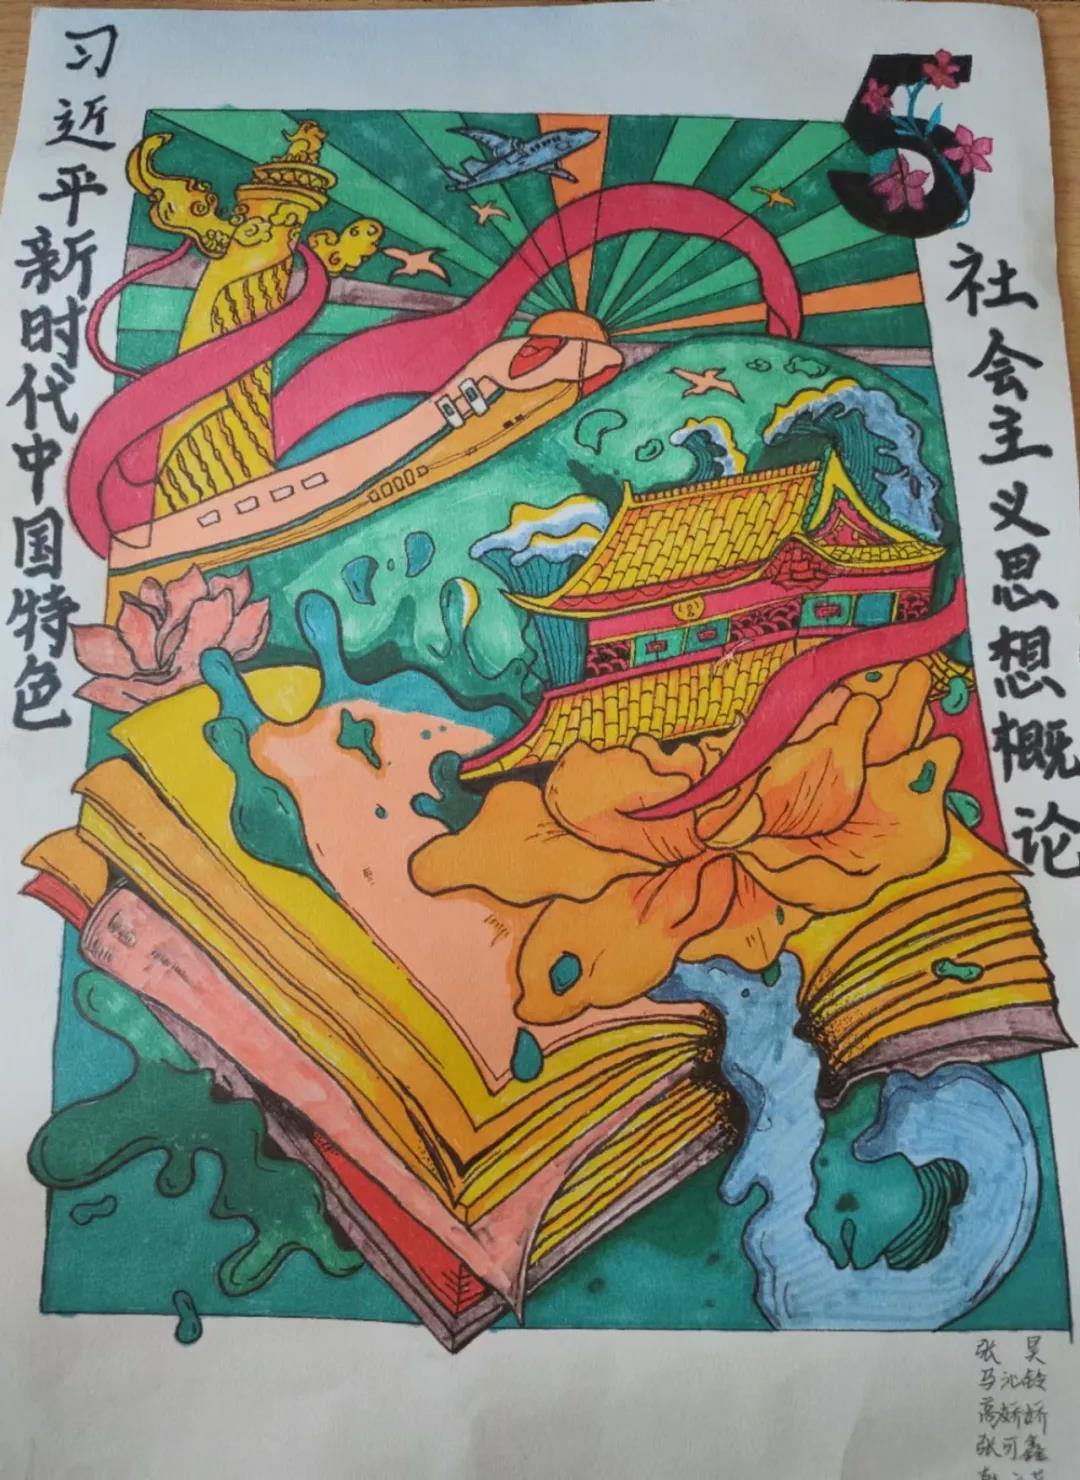 习近平新时代中国特色
5
社会主义思想概论
张昊
马沁铃
高娇娇
张可鑫